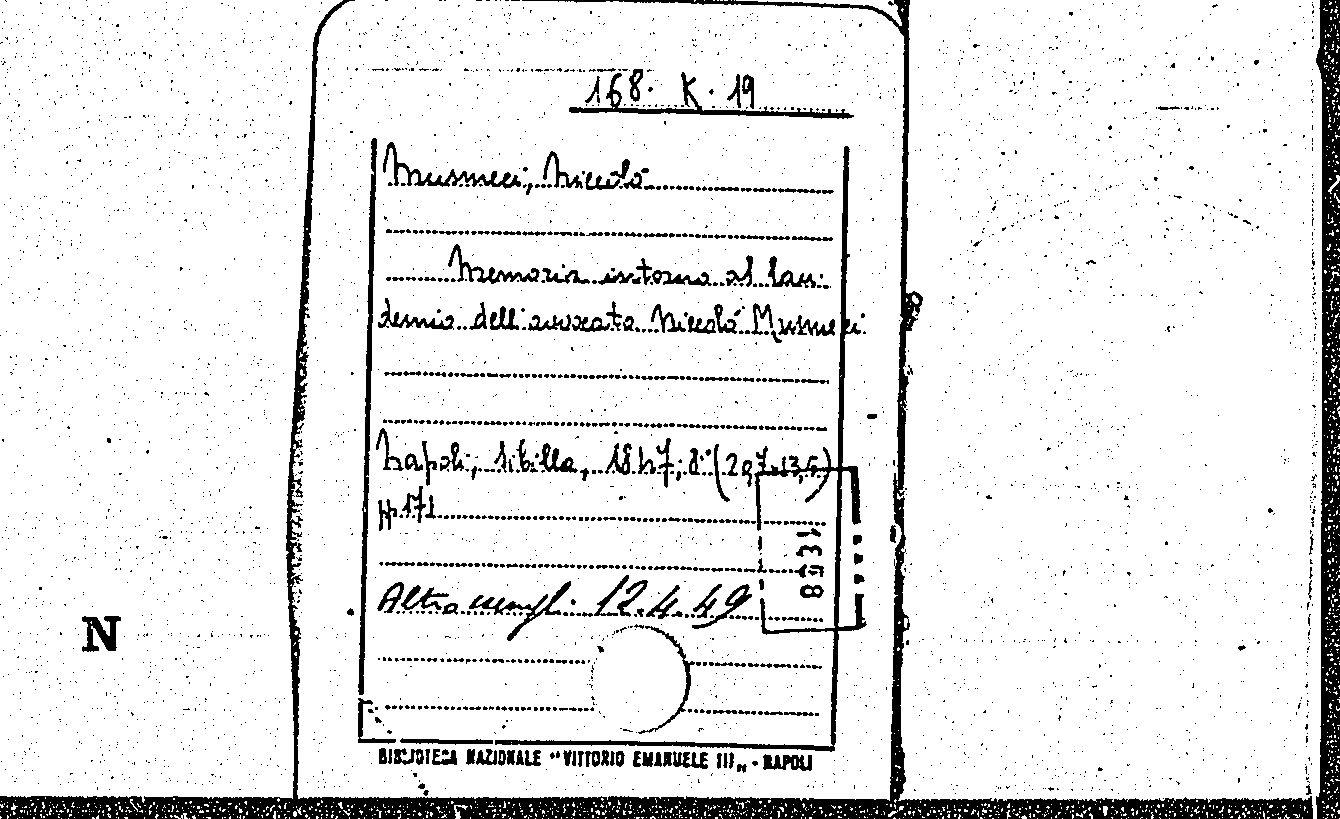 168. K. 19
Musmeci, Niccolò
Memoria intorno al lau-
demio dell'avvocato Niccolò Musmeci.
Napoli, Sibilla, 1847, 8° (20,7x13,5)
pp. 171
Altro esempl. 12.4.49
BIBLIOTECA NAZIONALE "VITTORIO EMANUELE III„ - NAPOLI
N